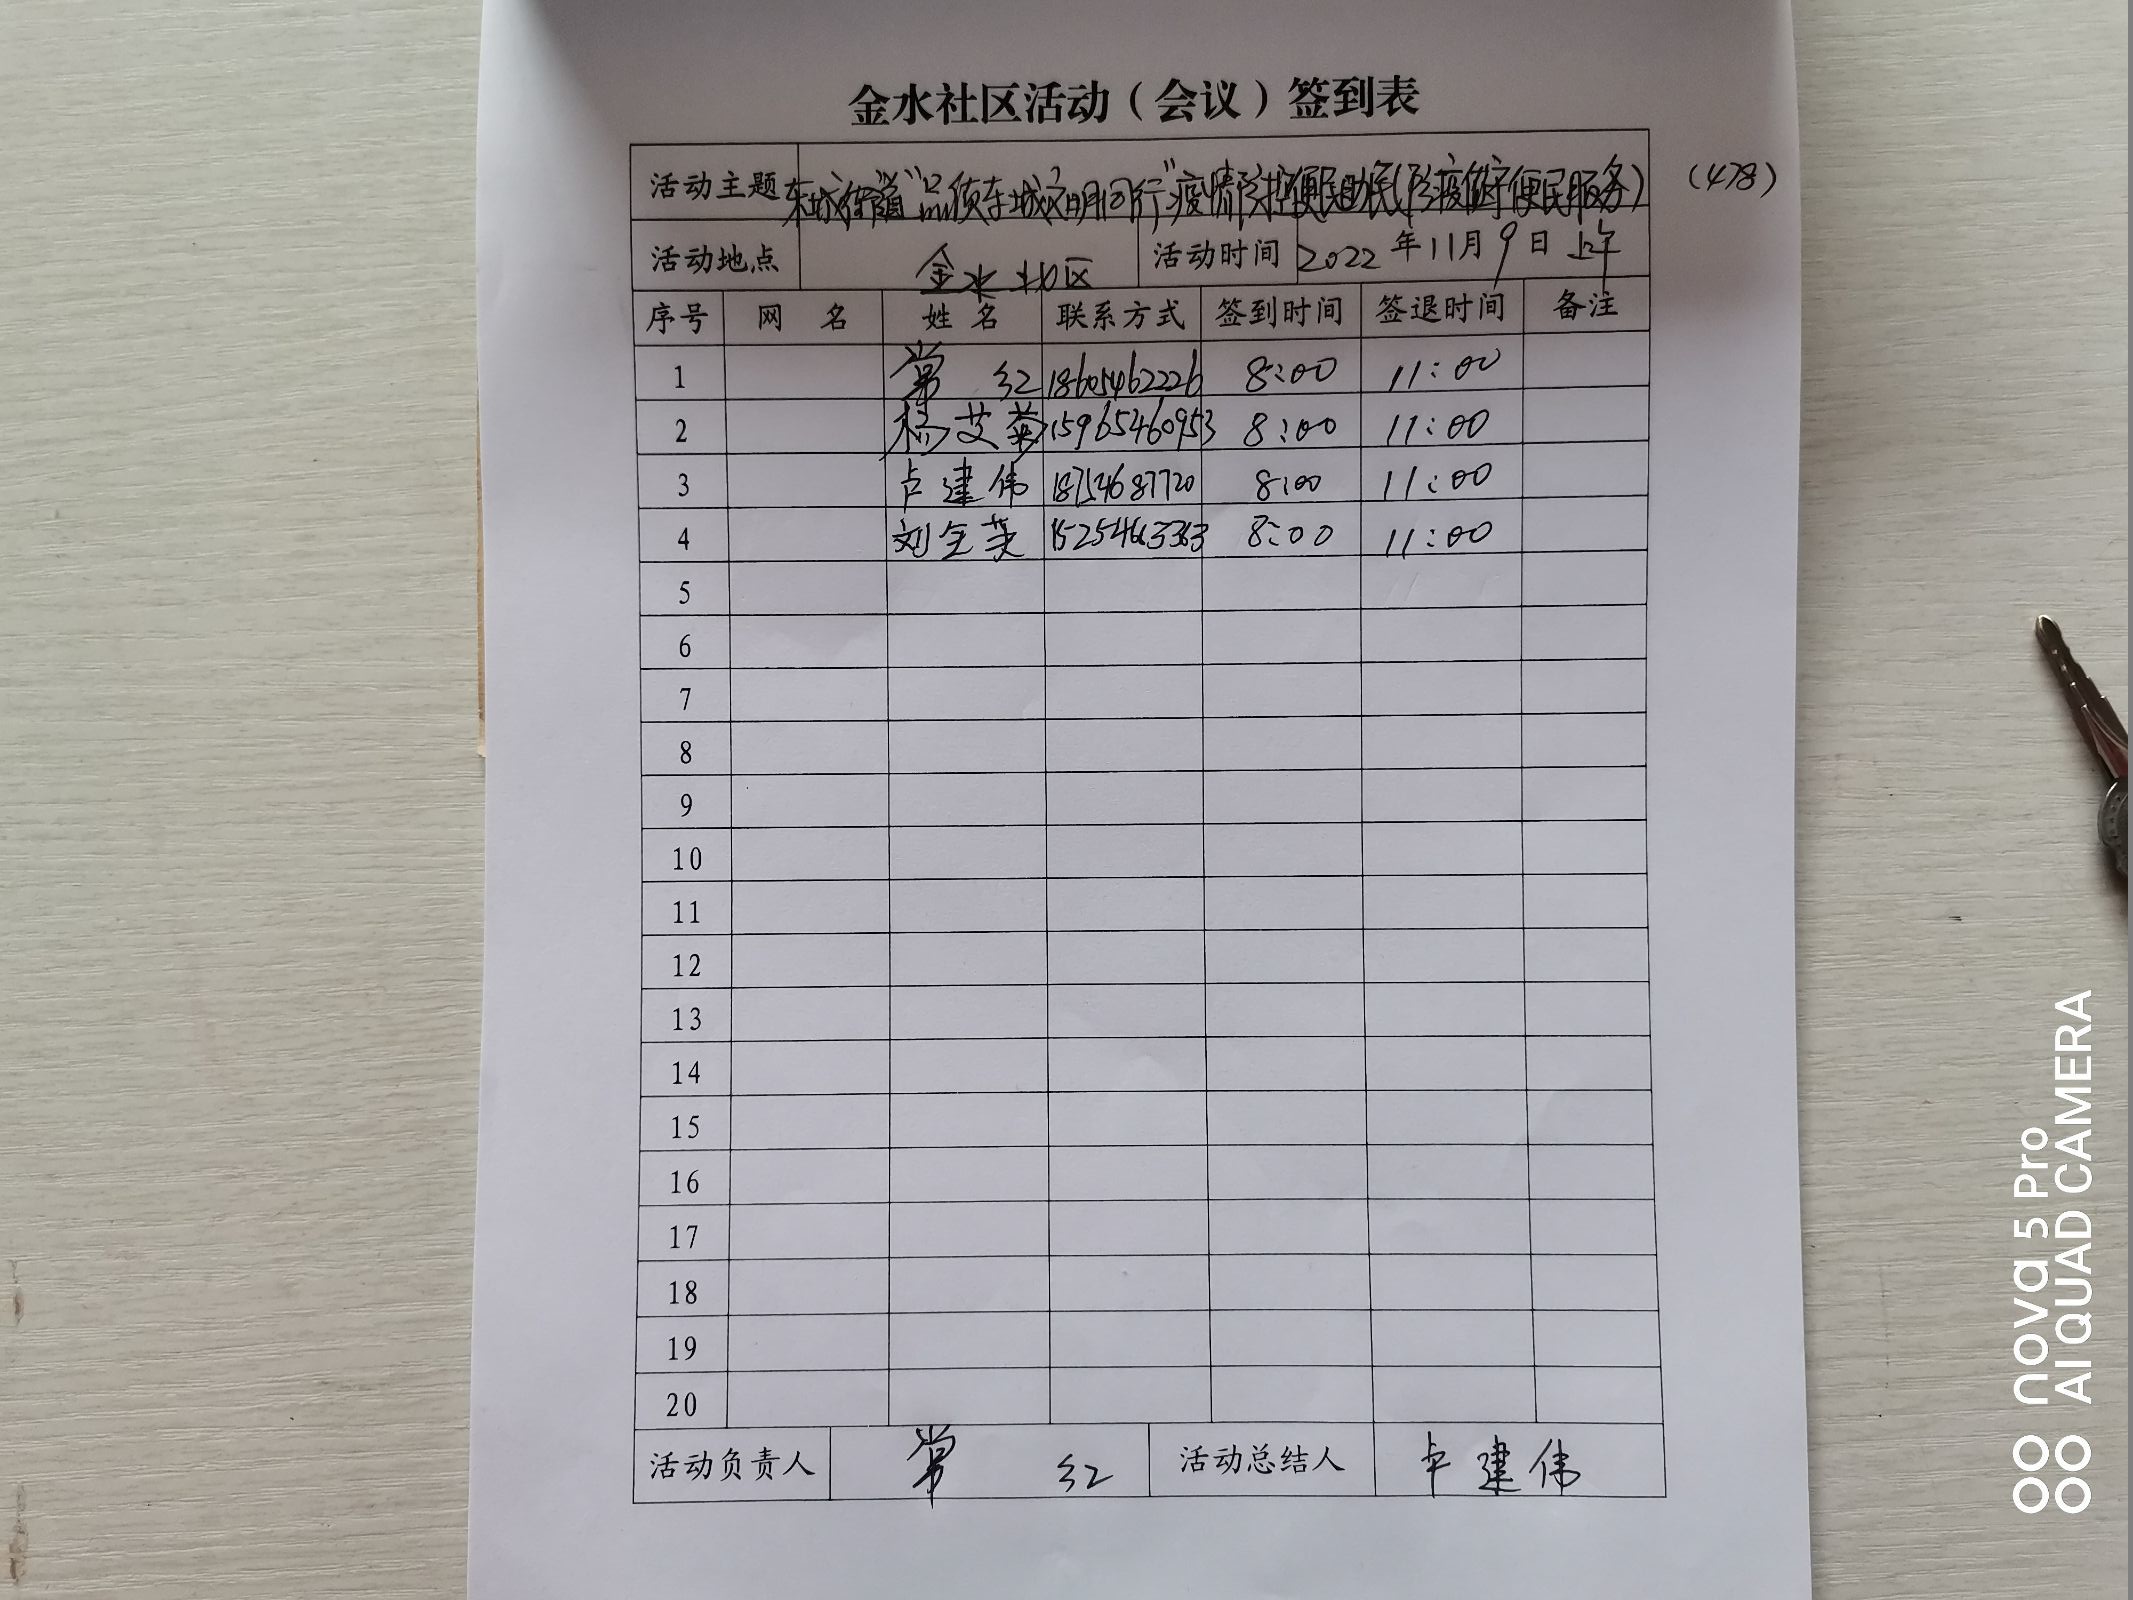 金水社区活动（会议）签到表
活动主题 东城街道"品质东城文明同行"疫情防控便民助民(防疫值守便民服务) (478)
活动地点 金水社区 活动时间 2022年11月9日上午
序号 网 名 姓 名 联系方式 签到时间 签退时间 备注
1 常 红 18605462226 8:00 11:00
2 杨艾菊 15965460953 8:00 11:00
3 卢建伟 18754687720 8:00 11:00
4 刘全英 8:00 11:00
5
6
7
8
9
10
11
12
13
14
15
16
17
18
19
20
活动负责人 常 红 活动总结人 卢建伟
nova 5 Pro
AI QUAD CAMERA